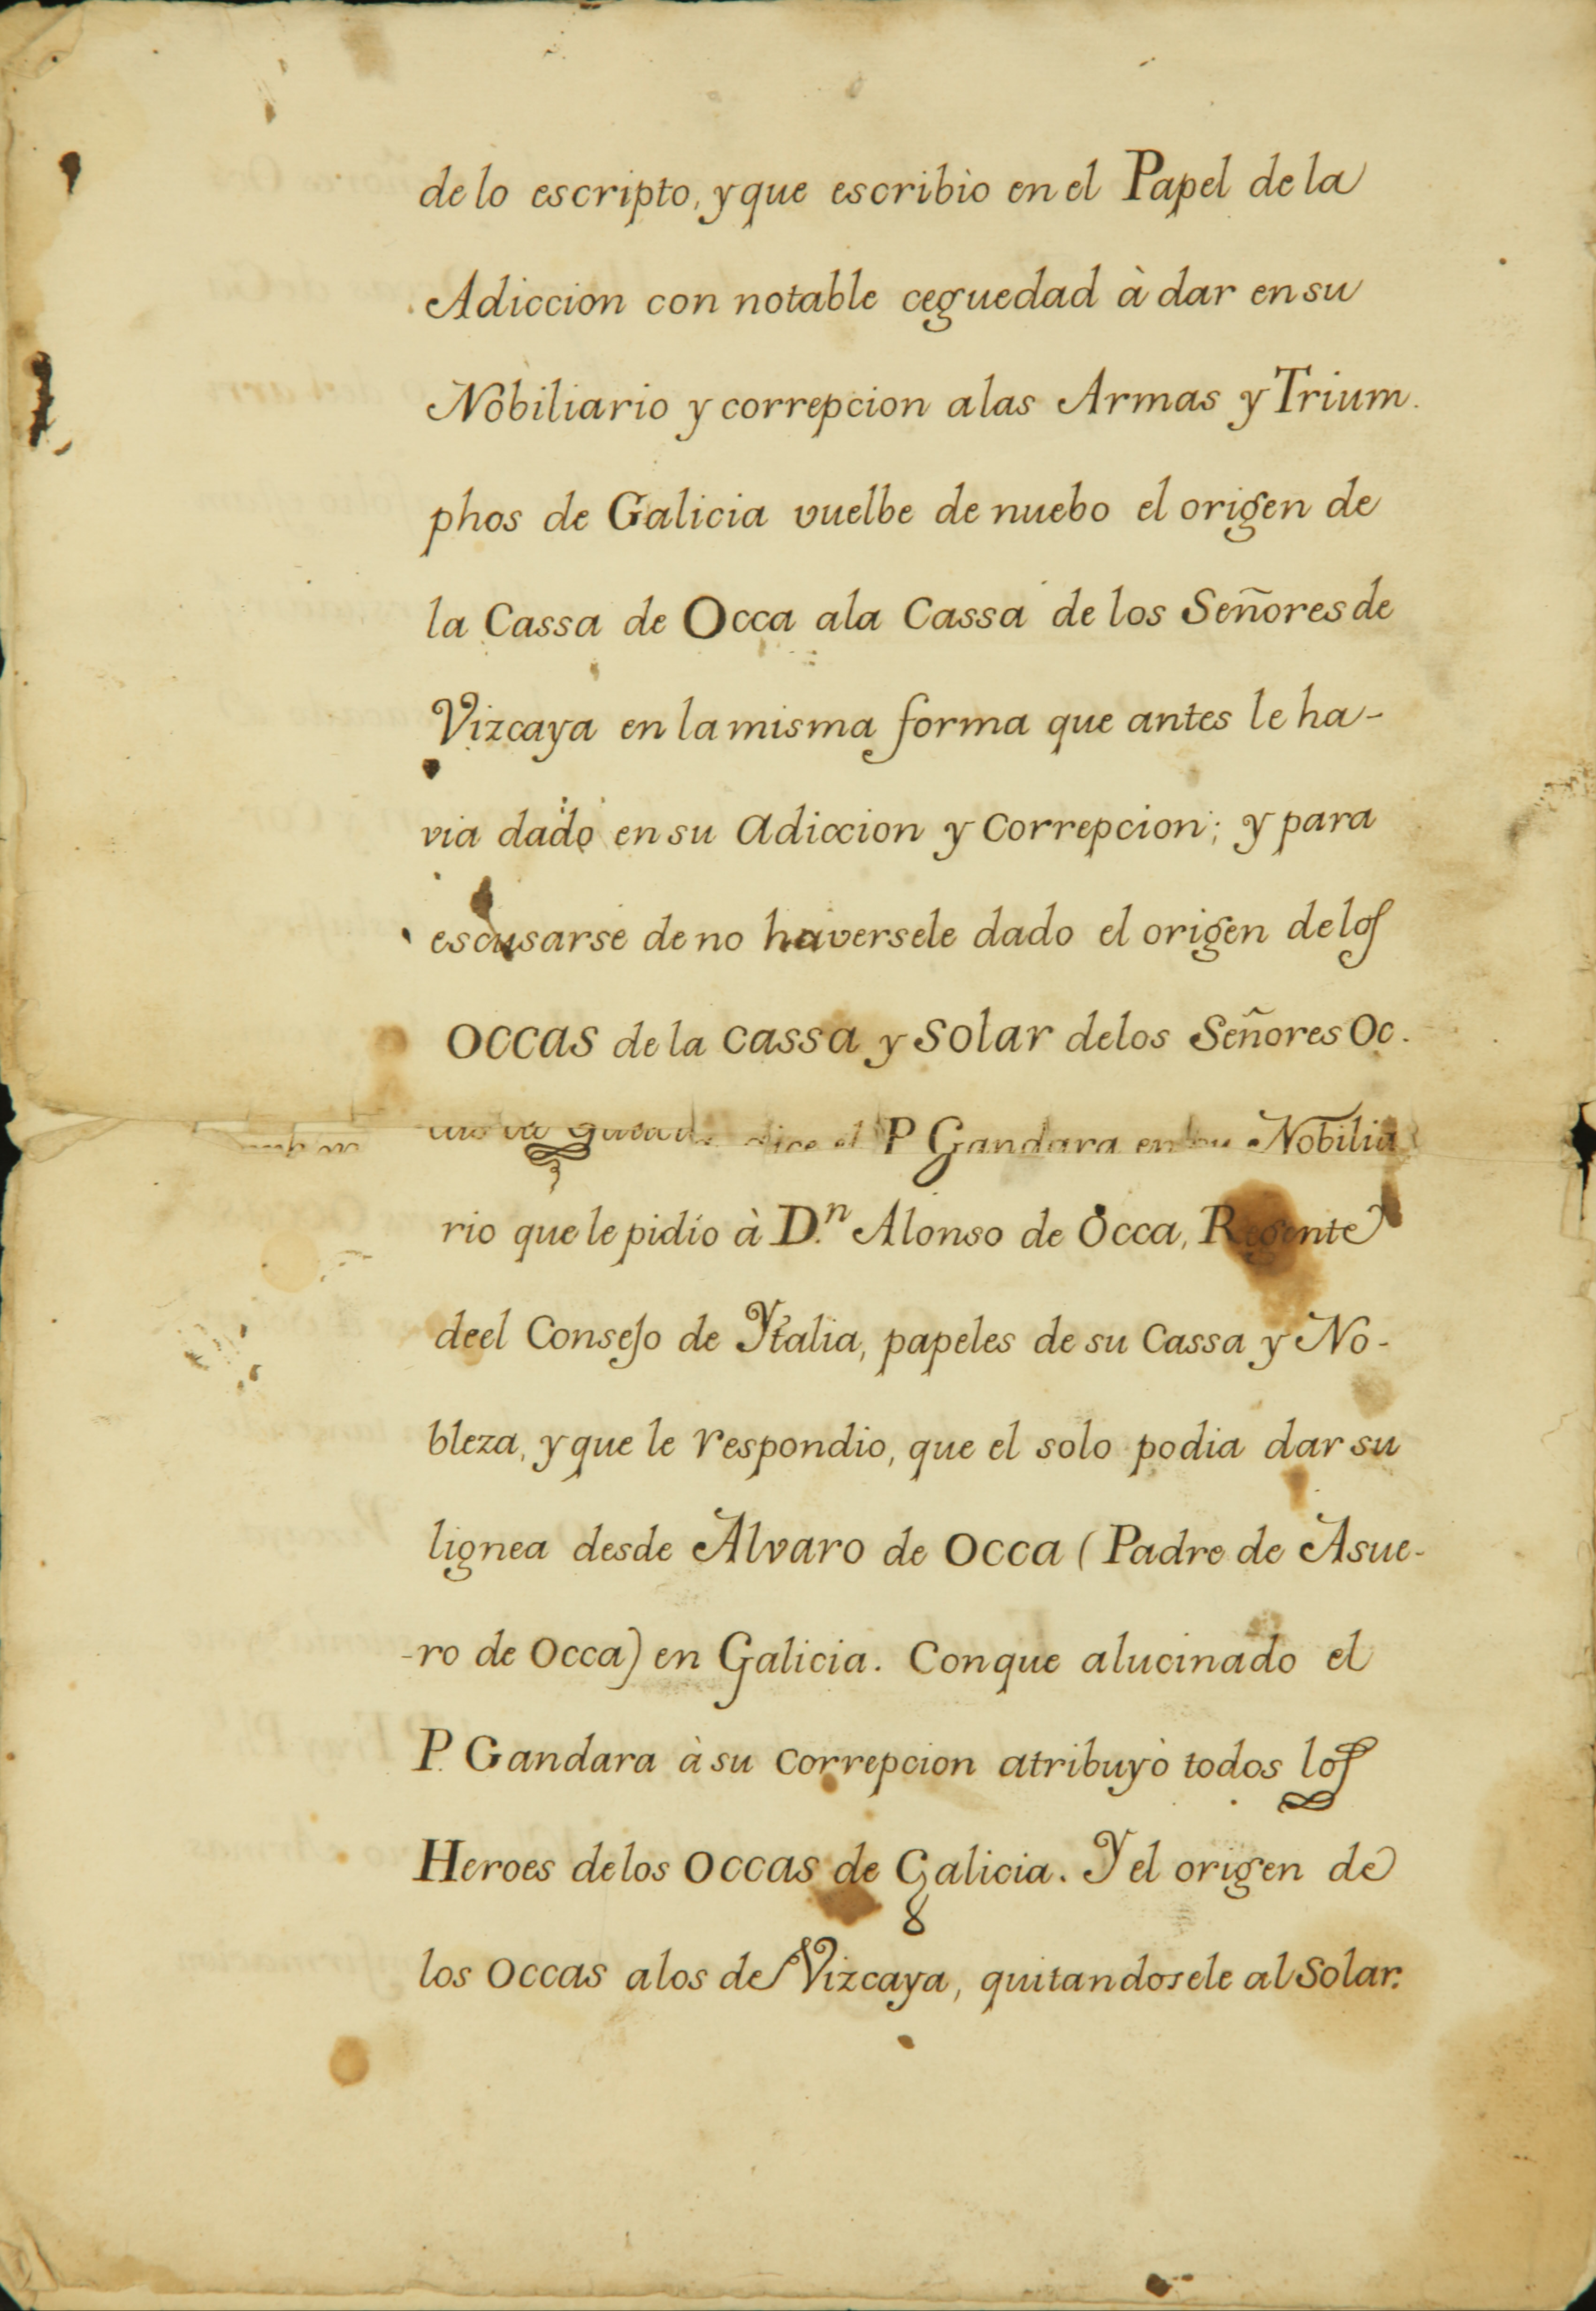 de lo escripto, y que escribìo en el Papel de la
Adiccion con notable ceguedad à dar en su
Nobiliario y correpcion a las Armas y Trium.
phos de Galicia vuelbe de nuebo el origen de
la Cassa de Occa ala Cassa de los Señores de
Vizcaya en la misma forma que antes le ha-
via dado en su Adiccion y Correpcion; y para
escusarse de no haversele dado el origen de los
OCCAS de la CASSA y SOLAR de los Señores Oc.
dice el P Gandara en su Nobilia
rio que le pidio à D.n Alonso de Occa, Regente
deel Consejo de Ytalia, papeles de su Cassa y No-
bleza, y que le respondio, que el solo podia dar su
lignea desde Alvaro de OCCA (Padre de Asue-
-ro de OCCA) en Galicia. Con que alucinado el
P. Gandara à su Correpcion atribuyò todos los
Heroes de los OCCAS de Galicia. Y el origen de
los OCCAS a los de Vizcaya, quitandosele al Solar.